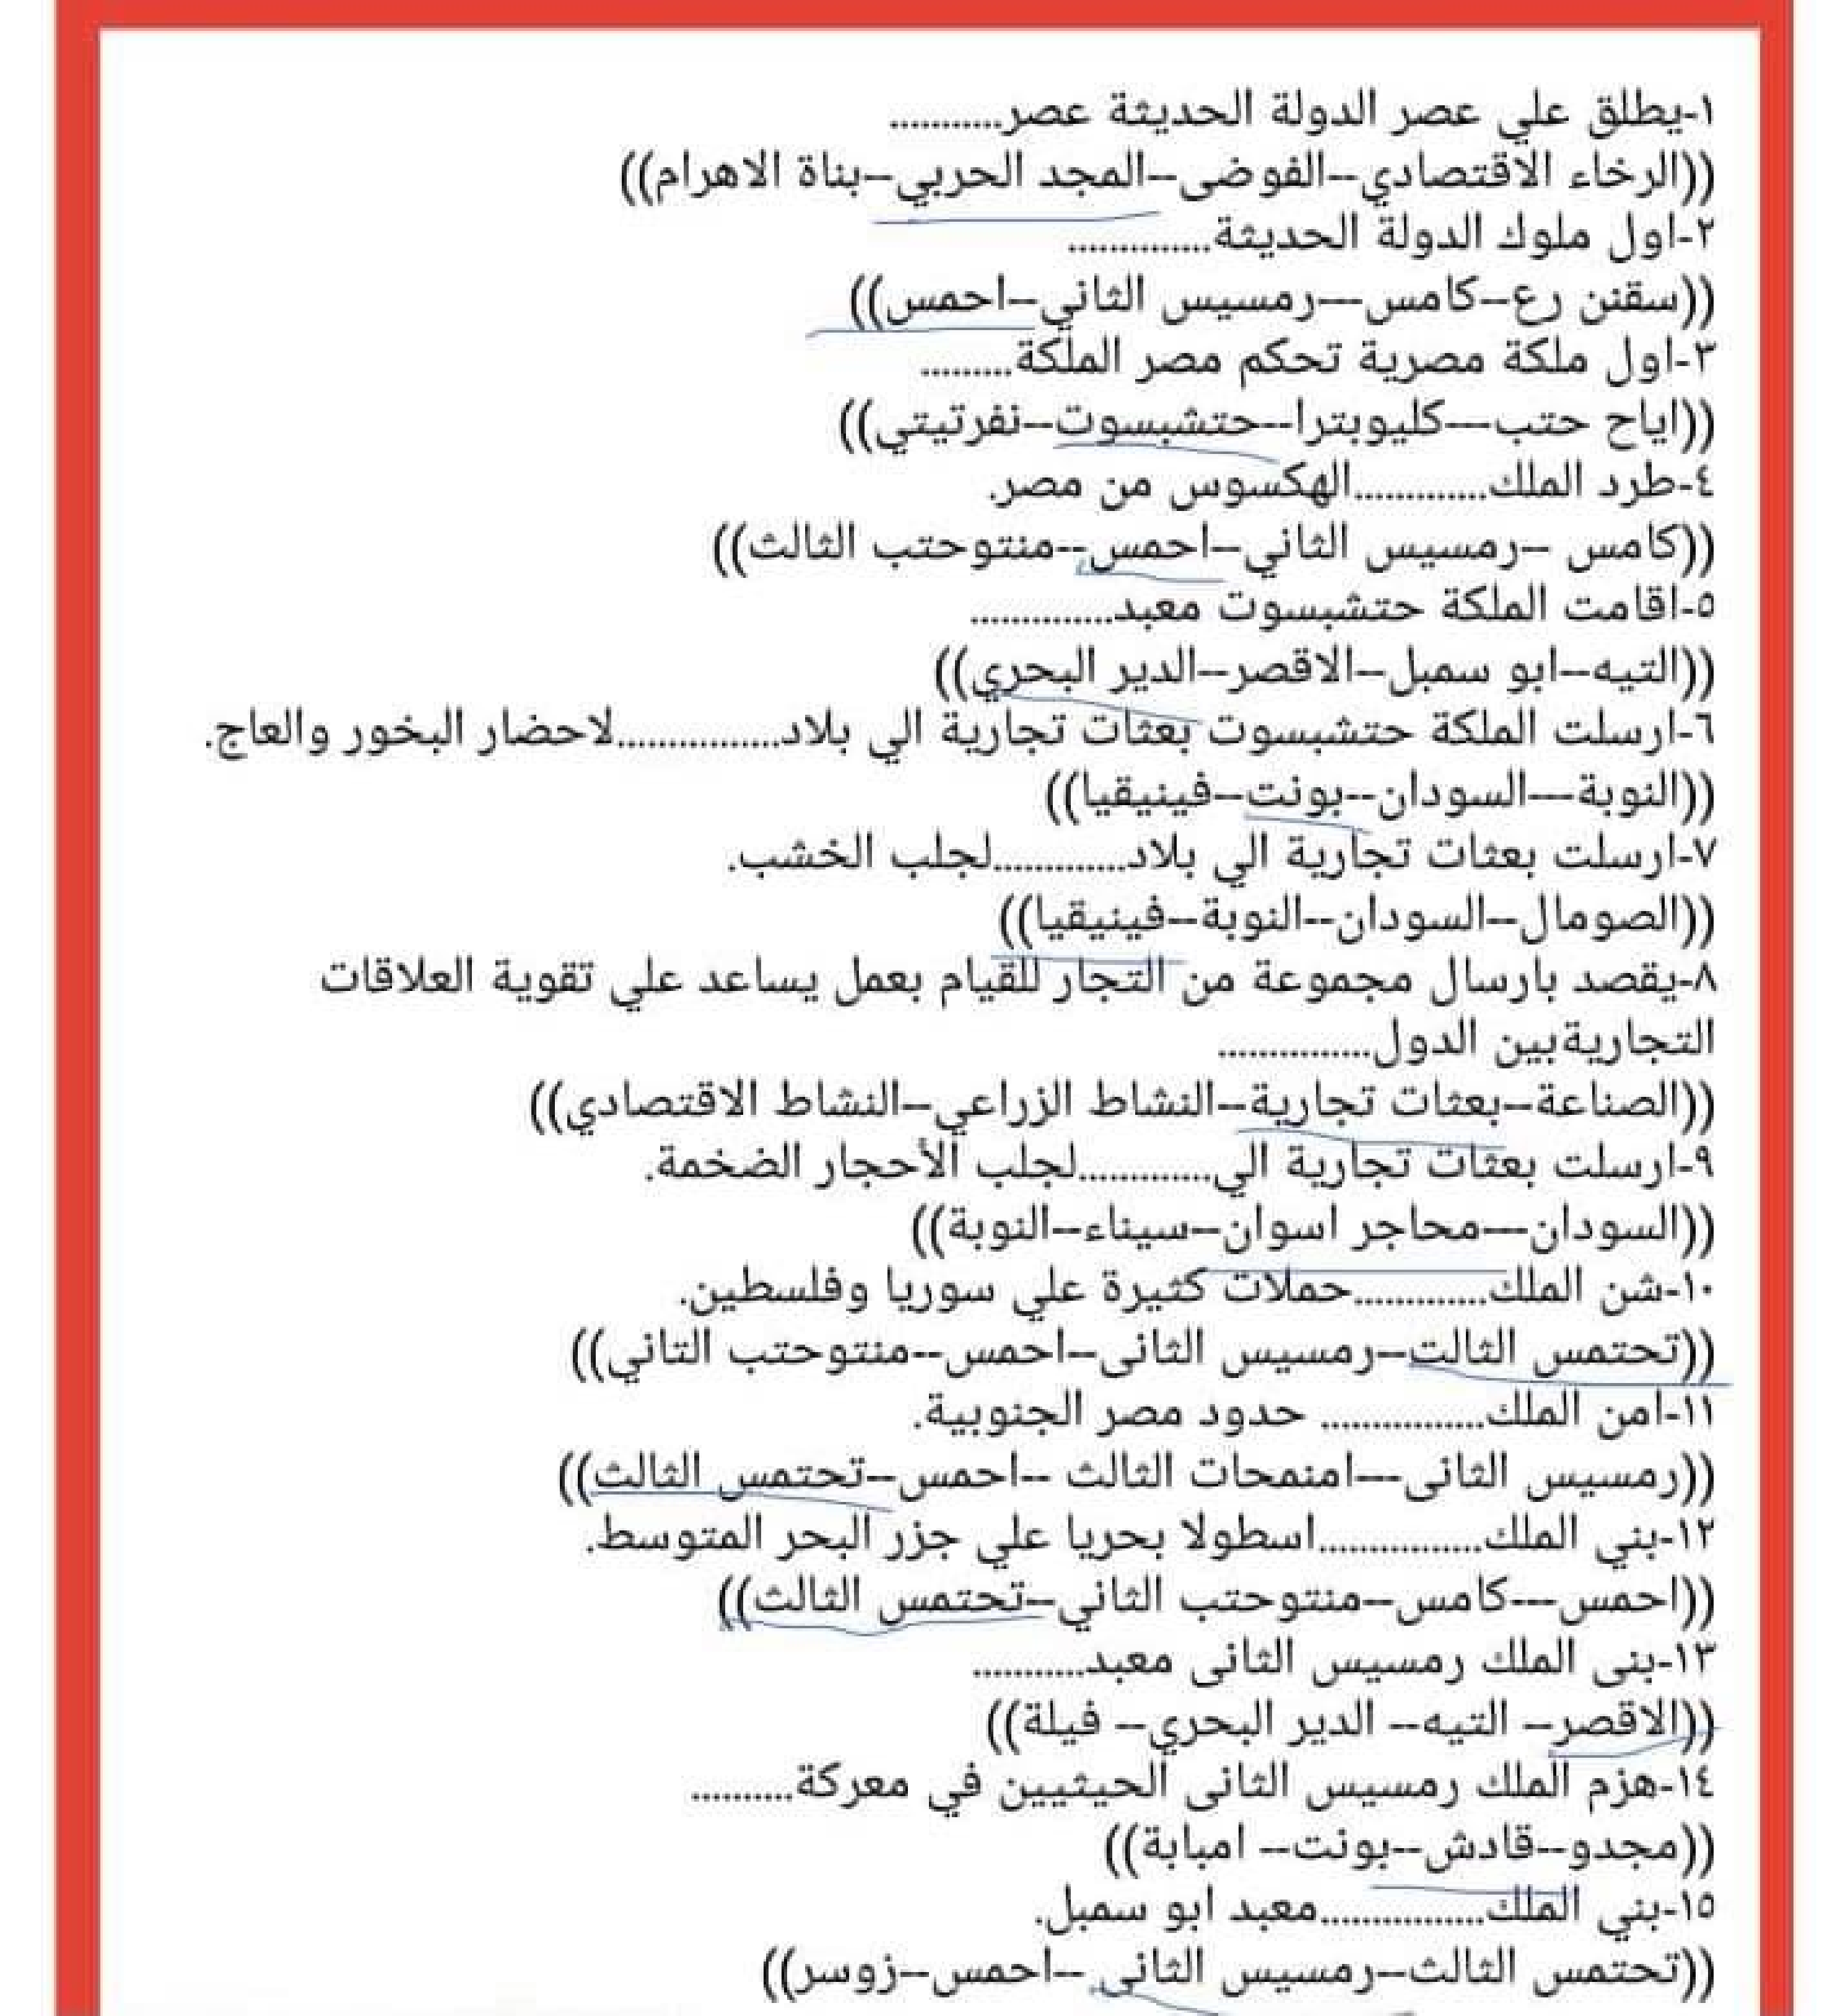 ١-يطلق علي عصر الدولة الحديثة عصر...........
((الرخاء الاقتصادي--الفوضى--المجد الحربي--بناة الاهرام))
٢-اول ملوك الدولة الحديثة..............
((سقنن رع--كامس---رمسيس الثاني--احمس))
٣-اول ملكة مصرية تحكم مصر الملكة.........
((اياح حتب---كليوبترا--حتشبسوت--نفرتيتي))
٤-طرد الملك.............الهكسوس من مصر.
((كامس --رمسيس الثاني--احمس--منتوحتب الثالث))
٥-اقامت الملكة حتشبسوت معبد..............
((التيه--ابو سمبل--الاقصر--الدير البحري))
٦-ارسلت الملكة حتشبسوت بعثات تجارية الي بلاد................لاحضار البخور والعاج.
((النوبة---السودان--بونت--فينيقيا))
٧-ارسلت بعثات تجارية الي بلاد.............لجلب الخشب.
((الصومال--السودان--النوبة--فينيقيا))
٨-يقصد بارسال مجموعة من التجار للقيام بعمل يساعد علي تقوية العلاقات
التجاريةبين الدول...............
((الصناعة--بعثات تجارية--النشاط الزراعي--النشاط الاقتصادي))
٩-ارسلت بعثات تجارية الي.............لجلب الأحجار الضخمة.
((السودان---محاجر اسوان--سيناء--النوبة))
١٠-شن الملك.............حملات كثيرة علي سوريا وفلسطين.
((تحتمس الثالت--رمسيس الثانى--احمس--منتوحتب التاني))
١١-امن الملك................ حدود مصر الجنوبية.
((رمسيس الثانى---امنمحات الثالث --احمس--تحتمس الثالث))
١٢-بني الملك................اسطولا بحريا علي جزر البحر المتوسط.
((احمس---كامس--منتوحتب الثاني--تحتمس الثالث))
١٣-بنى الملك رمسيس الثانى معبد...........
((الاقصر-- التيه-- الدير البحري-- فيلة))
١٤-هزم الملك رمسيس الثانى الحيثيين في معركة..........
((مجدو--قادش--بونت-- امبابة))
١٥-بني الملك................معبد ابو سمبل.
((تحتمس الثالث--رمسيس الثانى--احمس--زوسر))